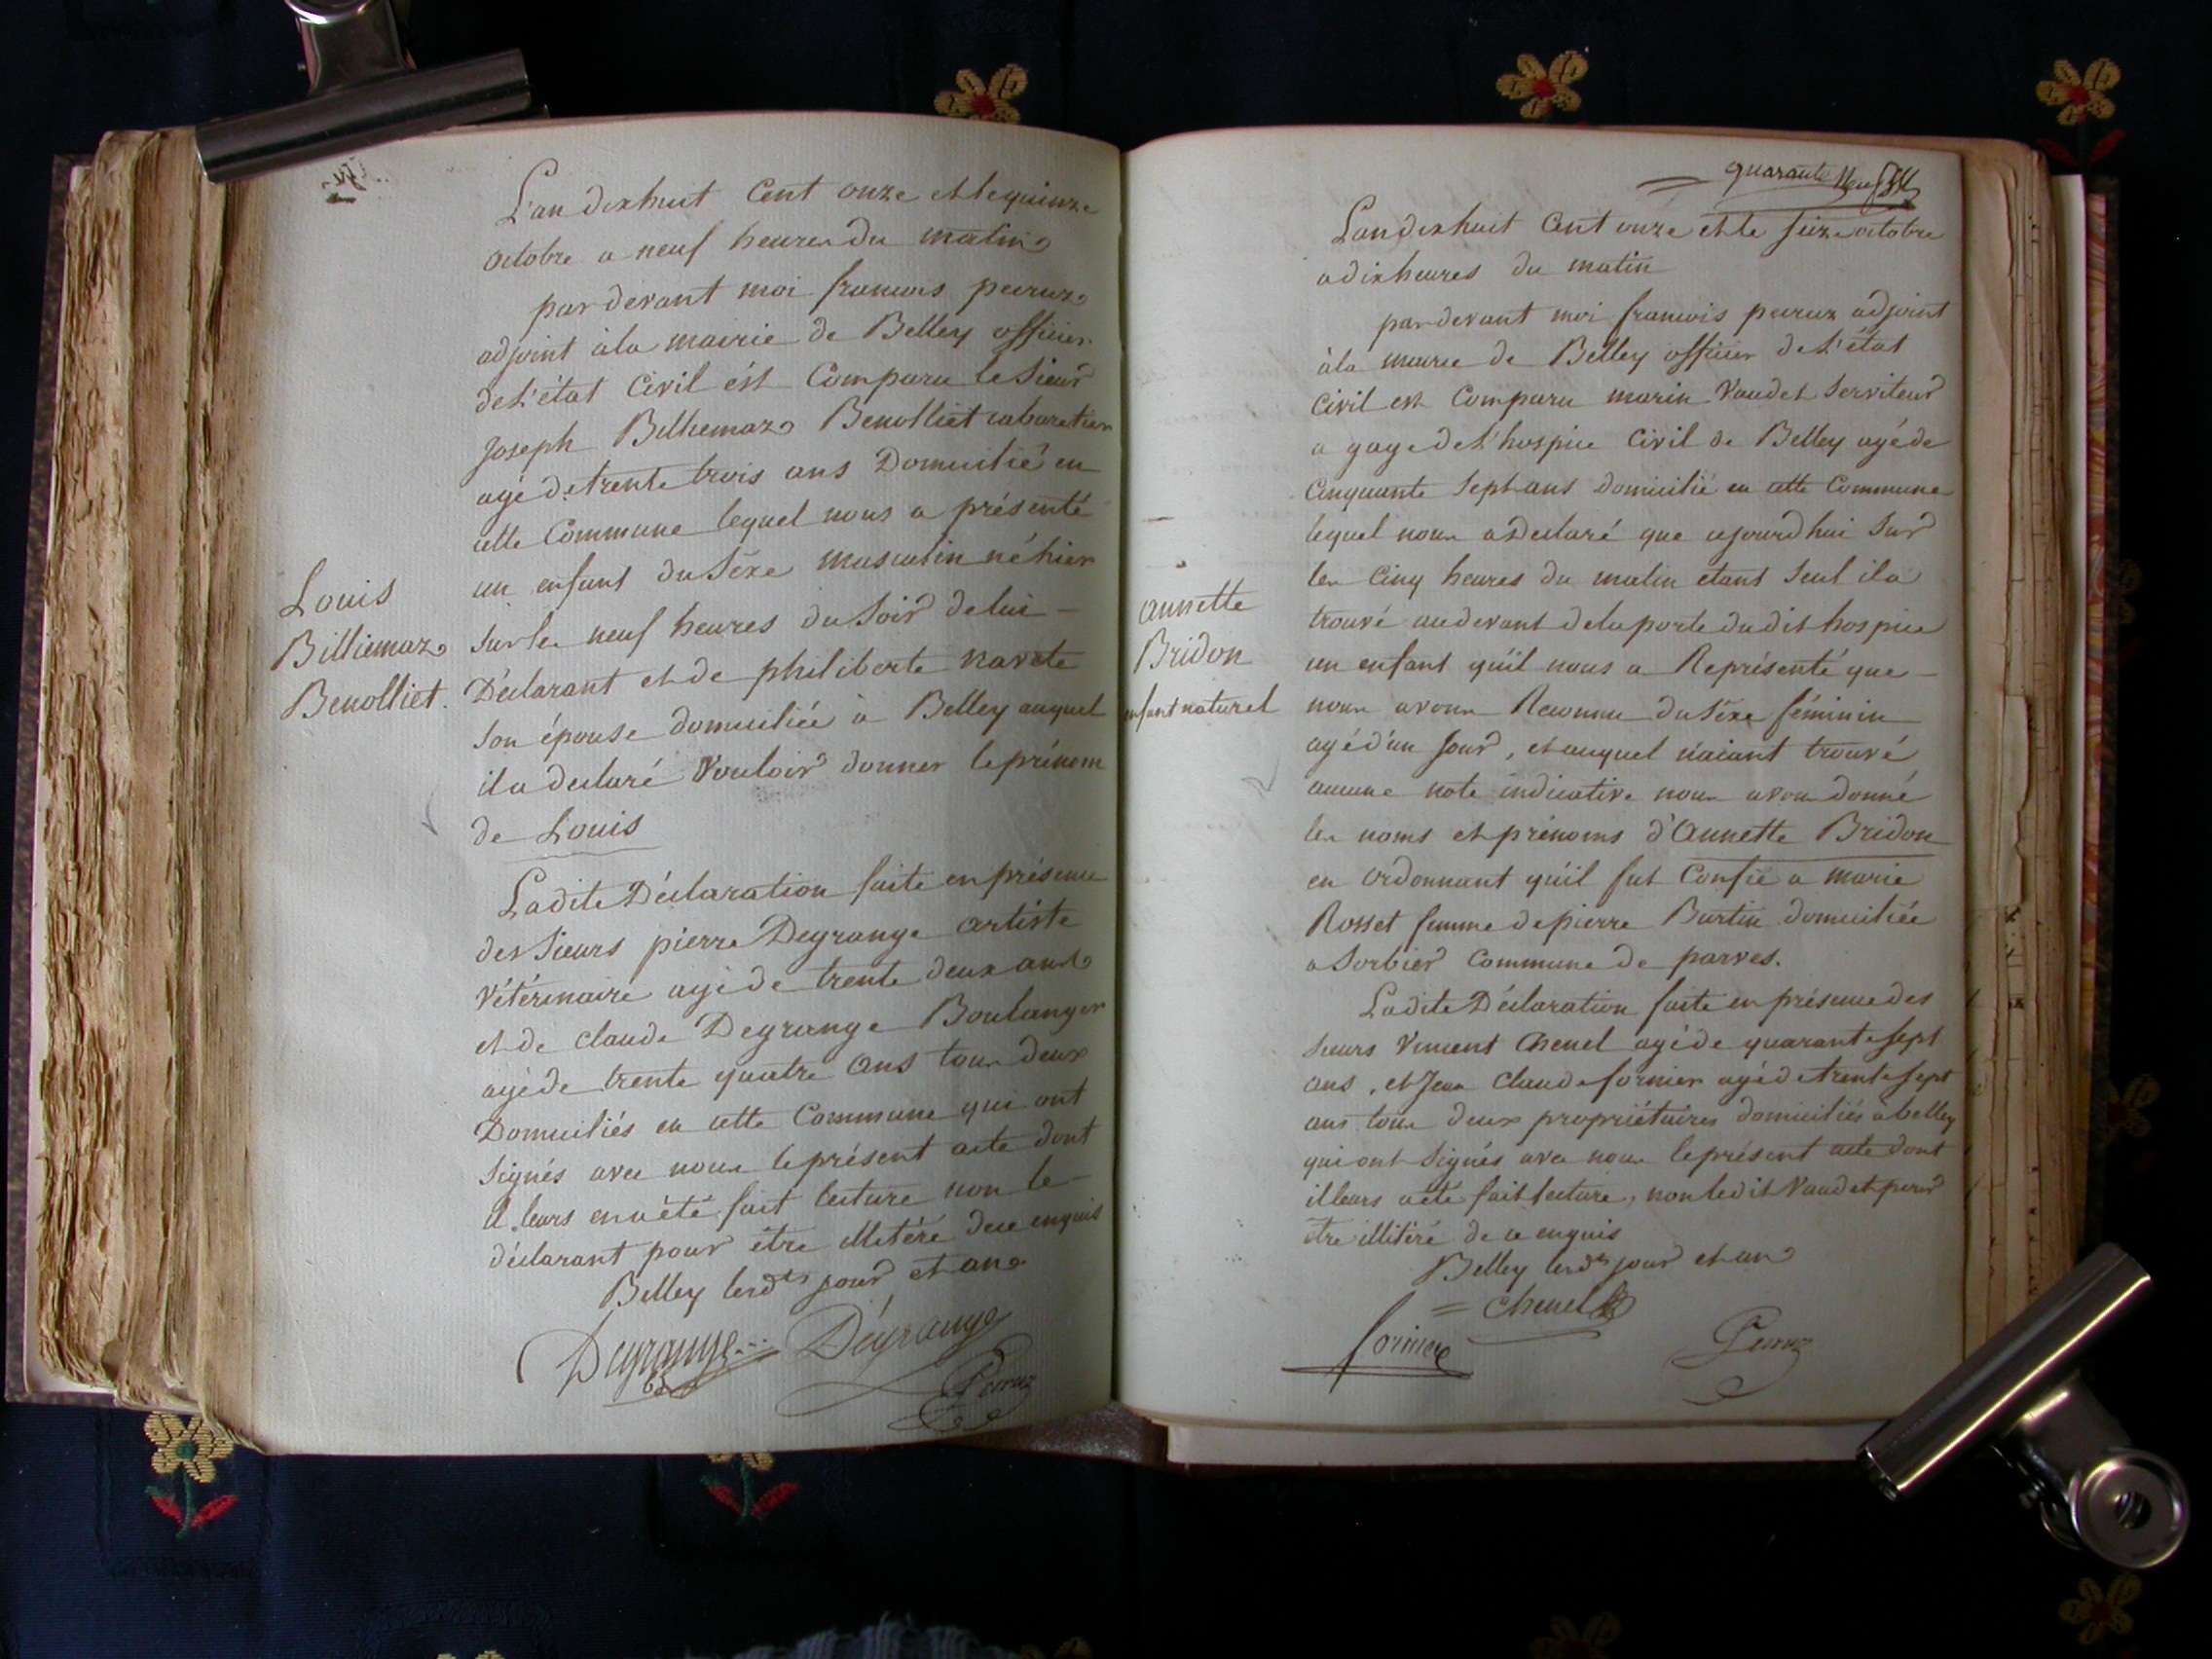 L'an dixhuit Cent onze et le quinze
octobre a neuf heures du matin
pardevant moi francois peeruz
adjoint àla mairie de Belley officier
de L'état Civil ést Comparu le Sieur
Joseph Billiemaz Benolliet cabaretier
agé de trente trois ans Domicilié en
cette Commune lequel nous a présenté
un enfant du Séxe masculin né hier
Louis
Billiemaz
Benolliet.
sur les neuf heures du Soir de lui
Déclarant et de philiberte
son épouse domiciliée à Belley auquel
il a declaré Vouloir donner le prénom
de Louis
Ladite Déclaration faite en présence
des Sieurs pierre Degrange artiste
Vétérinaire agé de trente deux ans
et de Claude Degrange Boulanger
agé de trente quatre ans tous deux
Domiciliés en cette Commune qui ont
signés avec nous le présent acte dont
il leurs en a été fait lecture non le
déclarant pour être illitéré de ce enquis
Belley les dts jour et an
Degrange
Dégrange
Peeruz
quarante neuf
L'an dixhuit Cent onze et le seize octobre
a dix heures du matin
pardevant moi francois peeruz adjoint
àla mairie de Belley officier de L'état
Civil est Comparu marin Vaudet Serviteur
a gage de L'hospice Civil de Belley agé de
Cinquante Sept ans Domicilié en cette Commune
lequel nous a Declaré que ajourd'hui Sur
les Cinq heures du matin etant Seul il a
trouvé audevant de la porte dudit hospice
un enfant qu'il nous a Représenté que
annette
Bridon
enfant naturel
nous avons Reconnu du Séxe féminin
agé d'un Jour, et auquel n'aiant trouvé
aucune note indicative nous avons donné
les noms et prénoms d'Annette Bridon
en ordonnant qu'il fut Confié a marie
Rosset femme de pierre Burtin domiciliée
a Sorbier Commune de parves.
Ladite Déclaration faite en présence des
Sieurs Vincent Chenel agé de quarante sept
ans, et Jean Claude fornier agé de trente sept
ans tous deux propriétaires domiciliés a belley
qui ont signés avec nous le présent acte dont
il leurs a été fait lecture, non ledit Vaudet pour
être illitéré de ce enquis
Belley les dts jour et an
Chenel
fornier
Peeruz